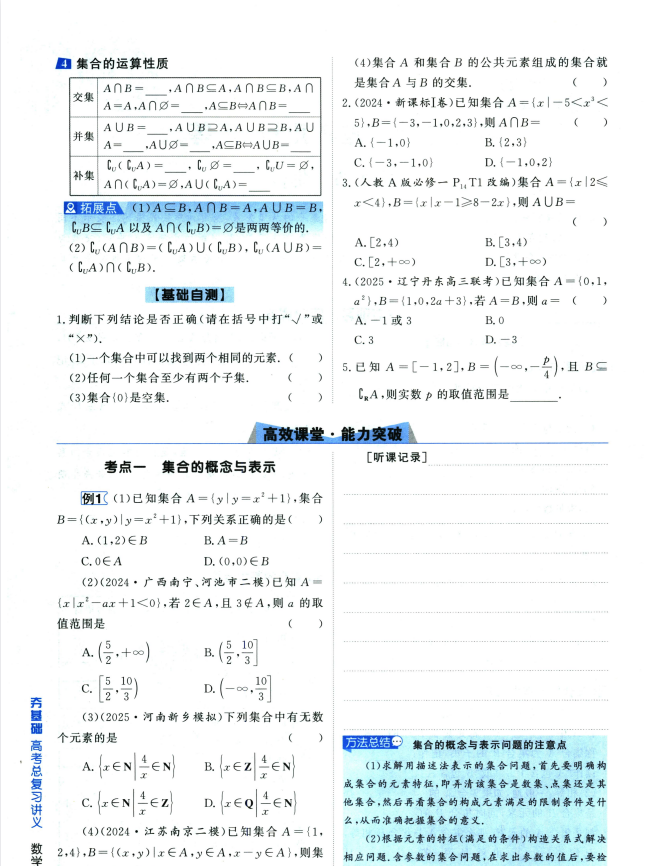 4 集合的运算性质
交集
A∩B=___,A∩B⊆A,A∩B⊆B,A∩
A=A,A∩∅=___,A⊆B⇔A∩B=___
并集
A∪B=___,A∪B⊇A,A∪B⊇B,A∪
A=___,A∪∅=___,A⊆B⇔A∪B=___
补集
∁U(∁UA)=___,∁U∅=___,∁UU=∅,
A∩(∁UA)=∅,A∪(∁UA)=___
拓展点 (1)A⊆B,A∩B=A,A∪B=B,
∁UB⊆∁UA 以及 A∩(∁UB)=∅是两两等价的.
(2)∁U(A∩B)=(∁UA)∪(∁UB),∁U(A∪B)=
(∁UA)∩(∁UB).
【基础自测】
1.判断下列结论是否正确(请在括号中打“√”或
“×”).
(1)一个集合中可以找到两个相同的元素.( )
(2)任何一个集合至少有两个子集. ( )
(3)集合{0}是空集. ( )
(4)集合 A 和集合 B 的公共元素组成的集合就
是集合 A 与 B 的交集. ( )
2.(2024·新课标Ⅰ卷)已知集合 A={x|-5<x³<
5},B={-3,-1,0,2,3},则 A∩B= ( )
A.{-1,0} B.{2,3}
C.{-3,-1,0} D.{-1,0,2}
3.(人教 A 版必修一 P14 T1 改编)集合 A={x|2≤
x<4},B={x|x-1≥8-2x},则 A∪B=
( )
A.[2,4) B.[3,4)
C.[2,+∞) D.[3,+∞)
4.(2025·辽宁丹东高三联考)已知集合 A={0,1,
a²},B={1,0,2a+3},若 A=B,则 a= ( )
A.-1 或 3 B.0
C.3 D.-3
5.已知 A=[-1,2],B=(-∞,-p/4),且 B⊆
∁RA,则实数 p 的取值范围是________.
高效课堂·能力突破
考点一 集合的概念与表示
例1 (1)已知集合 A={y|y=x²+1},集合
B={(x,y)|y=x²+1},下列关系正确的是( )
A.(1,2)∈B B.A=B
C.0∈A D.(0,0)∈B
(2)(2024·广西南宁、河池市二模)已知 A=
{x|x²-ax+1<0},若 2∈A,且 3∉A,则 a 的取
值范围是 ( )
A.(5/2,+∞) B.(5/2,10/3]
C.[5/2,10/3) D.(-∞,10/3]
(3)(2025·河南新乡模拟)下列集合中有无数
个元素的是 ( )
A.{x∈N|4/x∈N} B.{x∈Z|4/x∈N}
C.{x∈N|4/x∈Z} D.{x∈Q|4/x∈N}
(4)(2024·江苏南京二模)已知集合 A={1,
2,4},B={(x,y)|x∈A,y∈A,x-y∈A},则集
[听课记录]
方法总结 集合的概念与表示问题的注意点
(1)求解用描述法表示的集合问题,首先要明确构
成集合的元素特征,即弄清该集合是数集、点集还是其
他集合,然后再看集合的构成元素满足的限制条件是什
么,从而准确把握集合的意义.
(2)根据元素的特征(满足的条件)构造关系式解决
相应问题.含参数的集合问题,在求出参数的值后,要检
夯基础 高考总复习讲义 数学